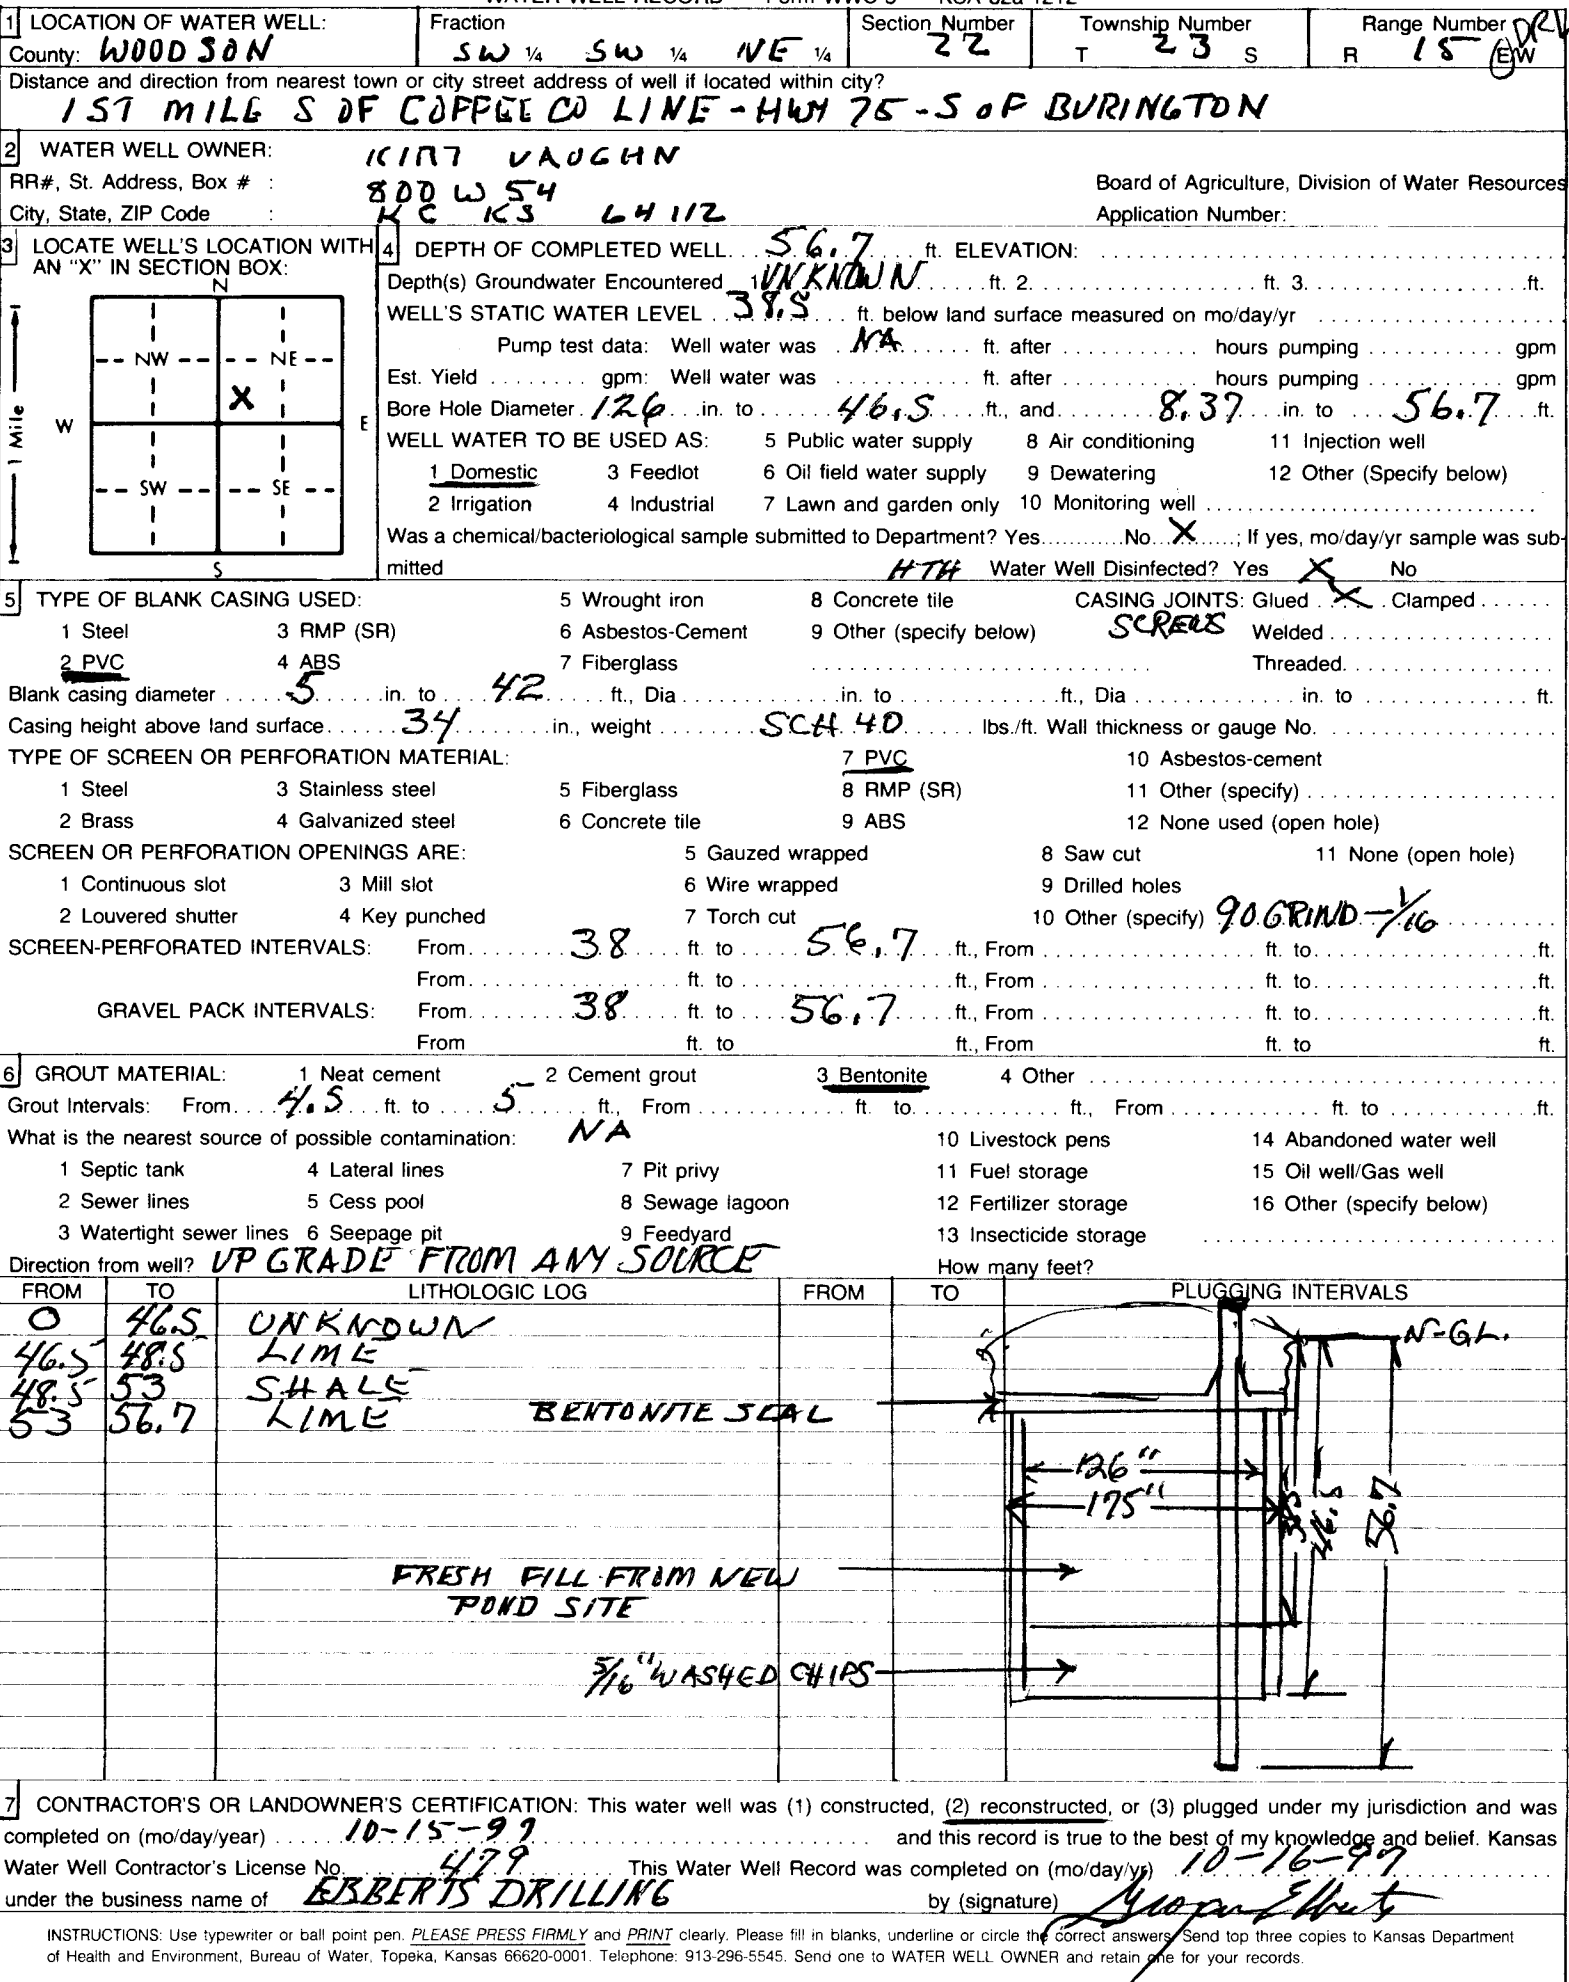 WATER WELL RECORD Form WWC-5 KSA 82a-1212
1 LOCATION OF WATER WELL: Fraction Section Number Township Number Range Number
County: WOODSON SW ¼ SW ¼ NE ¼ 22 T 23 S R 15 E/W
Distance and direction from nearest town or city street address of well if located within city?
1ST MILE S OF COFFEE CO LINE - HWY 75 - S OF BURINGTON
2 WATER WELL OWNER: KIM VAUGHN
RR#, St. Address, Box # : 800 W 54 Board of Agriculture, Division of Water Resources
City, State, ZIP Code : KC KS 64112 Application Number:
3 LOCATE WELL'S LOCATION WITH AN "X" IN SECTION BOX:
N
NW NE
X
W E
SW SE
S
1 Mile
4 DEPTH OF COMPLETED WELL 56.7 ft. ELEVATION:
Depth(s) Groundwater Encountered 1 UNKNOWN ft. 2. ft. 3. ft.
WELL'S STATIC WATER LEVEL 38.5 ft. below land surface measured on mo/day/yr
Pump test data: Well water was NA ft. after hours pumping gpm
Est. Yield gpm: Well water was ft. after hours pumping gpm
Bore Hole Diameter 126 in. to 46.5 ft., and 8.37 in. to 56.7 ft.
WELL WATER TO BE USED AS: 5 Public water supply 8 Air conditioning 11 Injection well
1 Domestic 3 Feedlot 6 Oil field water supply 9 Dewatering 12 Other (Specify below)
2 Irrigation 4 Industrial 7 Lawn and garden only 10 Monitoring well
Was a chemical/bacteriological sample submitted to Department? Yes No X ; If yes, mo/day/yr sample was sub-
mitted HTH Water Well Disinfected? Yes X No
5 TYPE OF BLANK CASING USED: 5 Wrought iron 8 Concrete tile CASING JOINTS: Glued X Clamped
1 Steel 3 RMP (SR) 6 Asbestos-Cement 9 Other (specify below) SCREWS Welded
2 PVC 4 ABS 7 Fiberglass Threaded
Blank casing diameter 5 in. to 42 ft., Dia in. to ft., Dia in. to ft.
Casing height above land surface 34 in., weight SCH. 40 lbs./ft. Wall thickness or gauge No.
TYPE OF SCREEN OR PERFORATION MATERIAL: 7 PVC 10 Asbestos-cement
1 Steel 3 Stainless steel 5 Fiberglass 8 RMP (SR) 11 Other (specify)
2 Brass 4 Galvanized steel 6 Concrete tile 9 ABS 12 None used (open hole)
SCREEN OR PERFORATION OPENINGS ARE: 5 Gauzed wrapped 8 Saw cut 11 None (open hole)
1 Continuous slot 3 Mill slot 6 Wire wrapped 9 Drilled holes
2 Louvered shutter 4 Key punched 7 Torch cut 10 Other (specify) 90 GRIND - 1/16
SCREEN-PERFORATED INTERVALS: From 38 ft. to 56.7 ft., From ft. to ft.
From ft. to ft., From ft. to ft.
GRAVEL PACK INTERVALS: From 38 ft. to 56.7 ft., From ft. to ft.
From ft. to ft., From ft. to ft.
6 GROUT MATERIAL: 1 Neat cement 2 Cement grout 3 Bentonite 4 Other
Grout Intervals: From 4.5 ft. to 5 ft., From ft. to ft., From ft. to ft.
What is the nearest source of possible contamination: NA 10 Livestock pens 14 Abandoned water well
1 Septic tank 4 Lateral lines 7 Pit privy 11 Fuel storage 15 Oil well/Gas well
2 Sewer lines 5 Cess pool 8 Sewage lagoon 12 Fertilizer storage 16 Other (specify below)
3 Watertight sewer lines 6 Seepage pit 9 Feedyard 13 Insecticide storage
Direction from well? UP GRADE FROM ANY SOURCE How many feet?
FROM TO LITHOLOGIC LOG FROM TO PLUGGING INTERVALS
0 46.5 UNKNOWN N-GL.
46.5 48.5 LIME
48.5 53 SHALE
53 56.7 LIME BENTONITE SEAL
126"
175"
46.5 56.7
FRESH FILL FROM NEW
POND SITE
5/16" WASHED CHIPS
7 CONTRACTOR'S OR LANDOWNER'S CERTIFICATION: This water well was (1) constructed, (2) reconstructed, or (3) plugged under my jurisdiction and was
completed on (mo/day/year) 10-15-97 and this record is true to the best of my knowledge and belief. Kansas
Water Well Contractor's License No. 479 This Water Well Record was completed on (mo/day/yr) 10-16-97
under the business name of EBBERTS DRILLING by (signature)
INSTRUCTIONS: Use typewriter or ball point pen. PLEASE PRESS FIRMLY and PRINT clearly. Please fill in blanks, underline or circle the correct answers. Send top three copies to Kansas Department
of Health and Environment, Bureau of Water, Topeka, Kansas 66620-0001. Telephone: 913-296-5545. Send one to WATER WELL OWNER and retain one for your records.